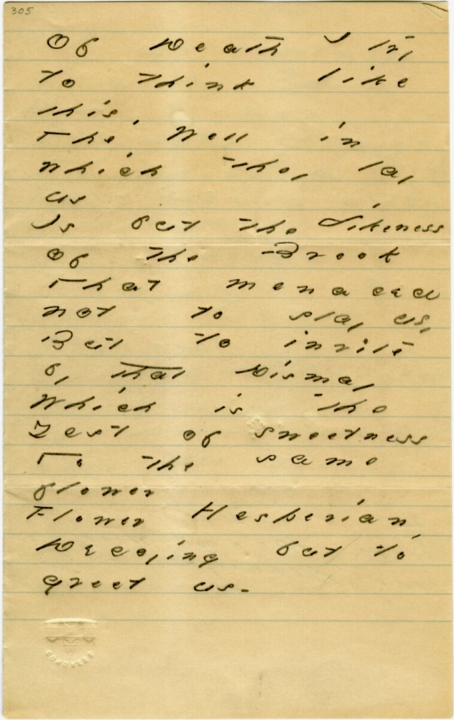 305
Of Death I try
to think like
this,
The Well in
which they lay
us
Is but the Likeness
Of the Brook
That menaced
not to slay us,
But to invite
by that Dismay
Which is the
Zest of sweetness
To the same
flower
Flower Hesperian
Decoying but to
greet us -
CONGRESS